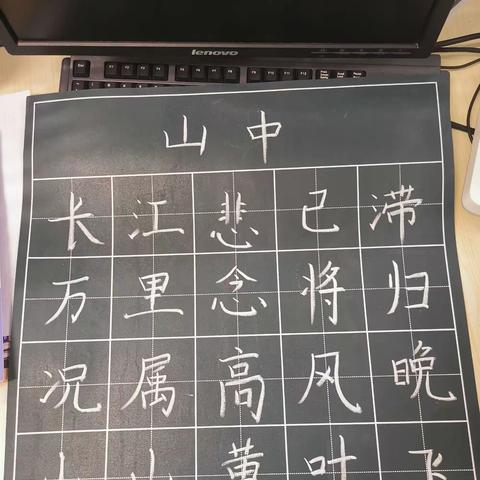 lenovo
山中
长江悲已滞
万里念将归
况属高风晚
山山黄叶飞